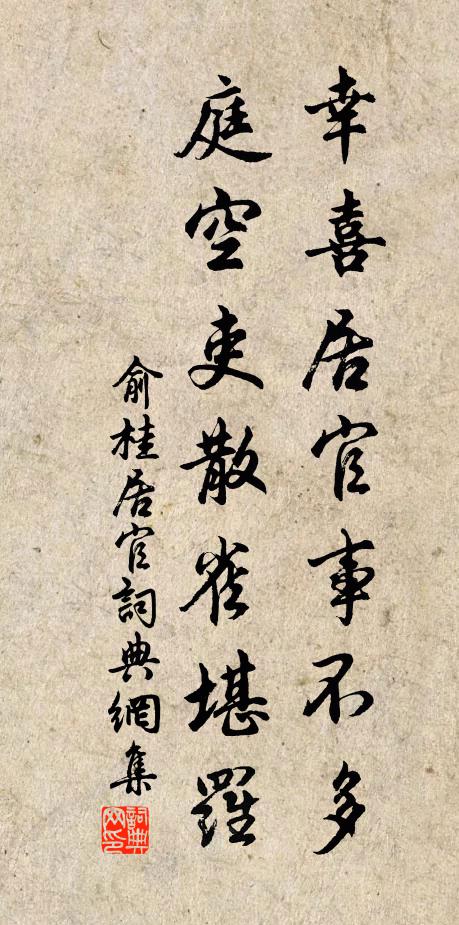 幸喜居官事不多
庭空吏散雀堪羅
俞桂居官詞典網集
詞典网印